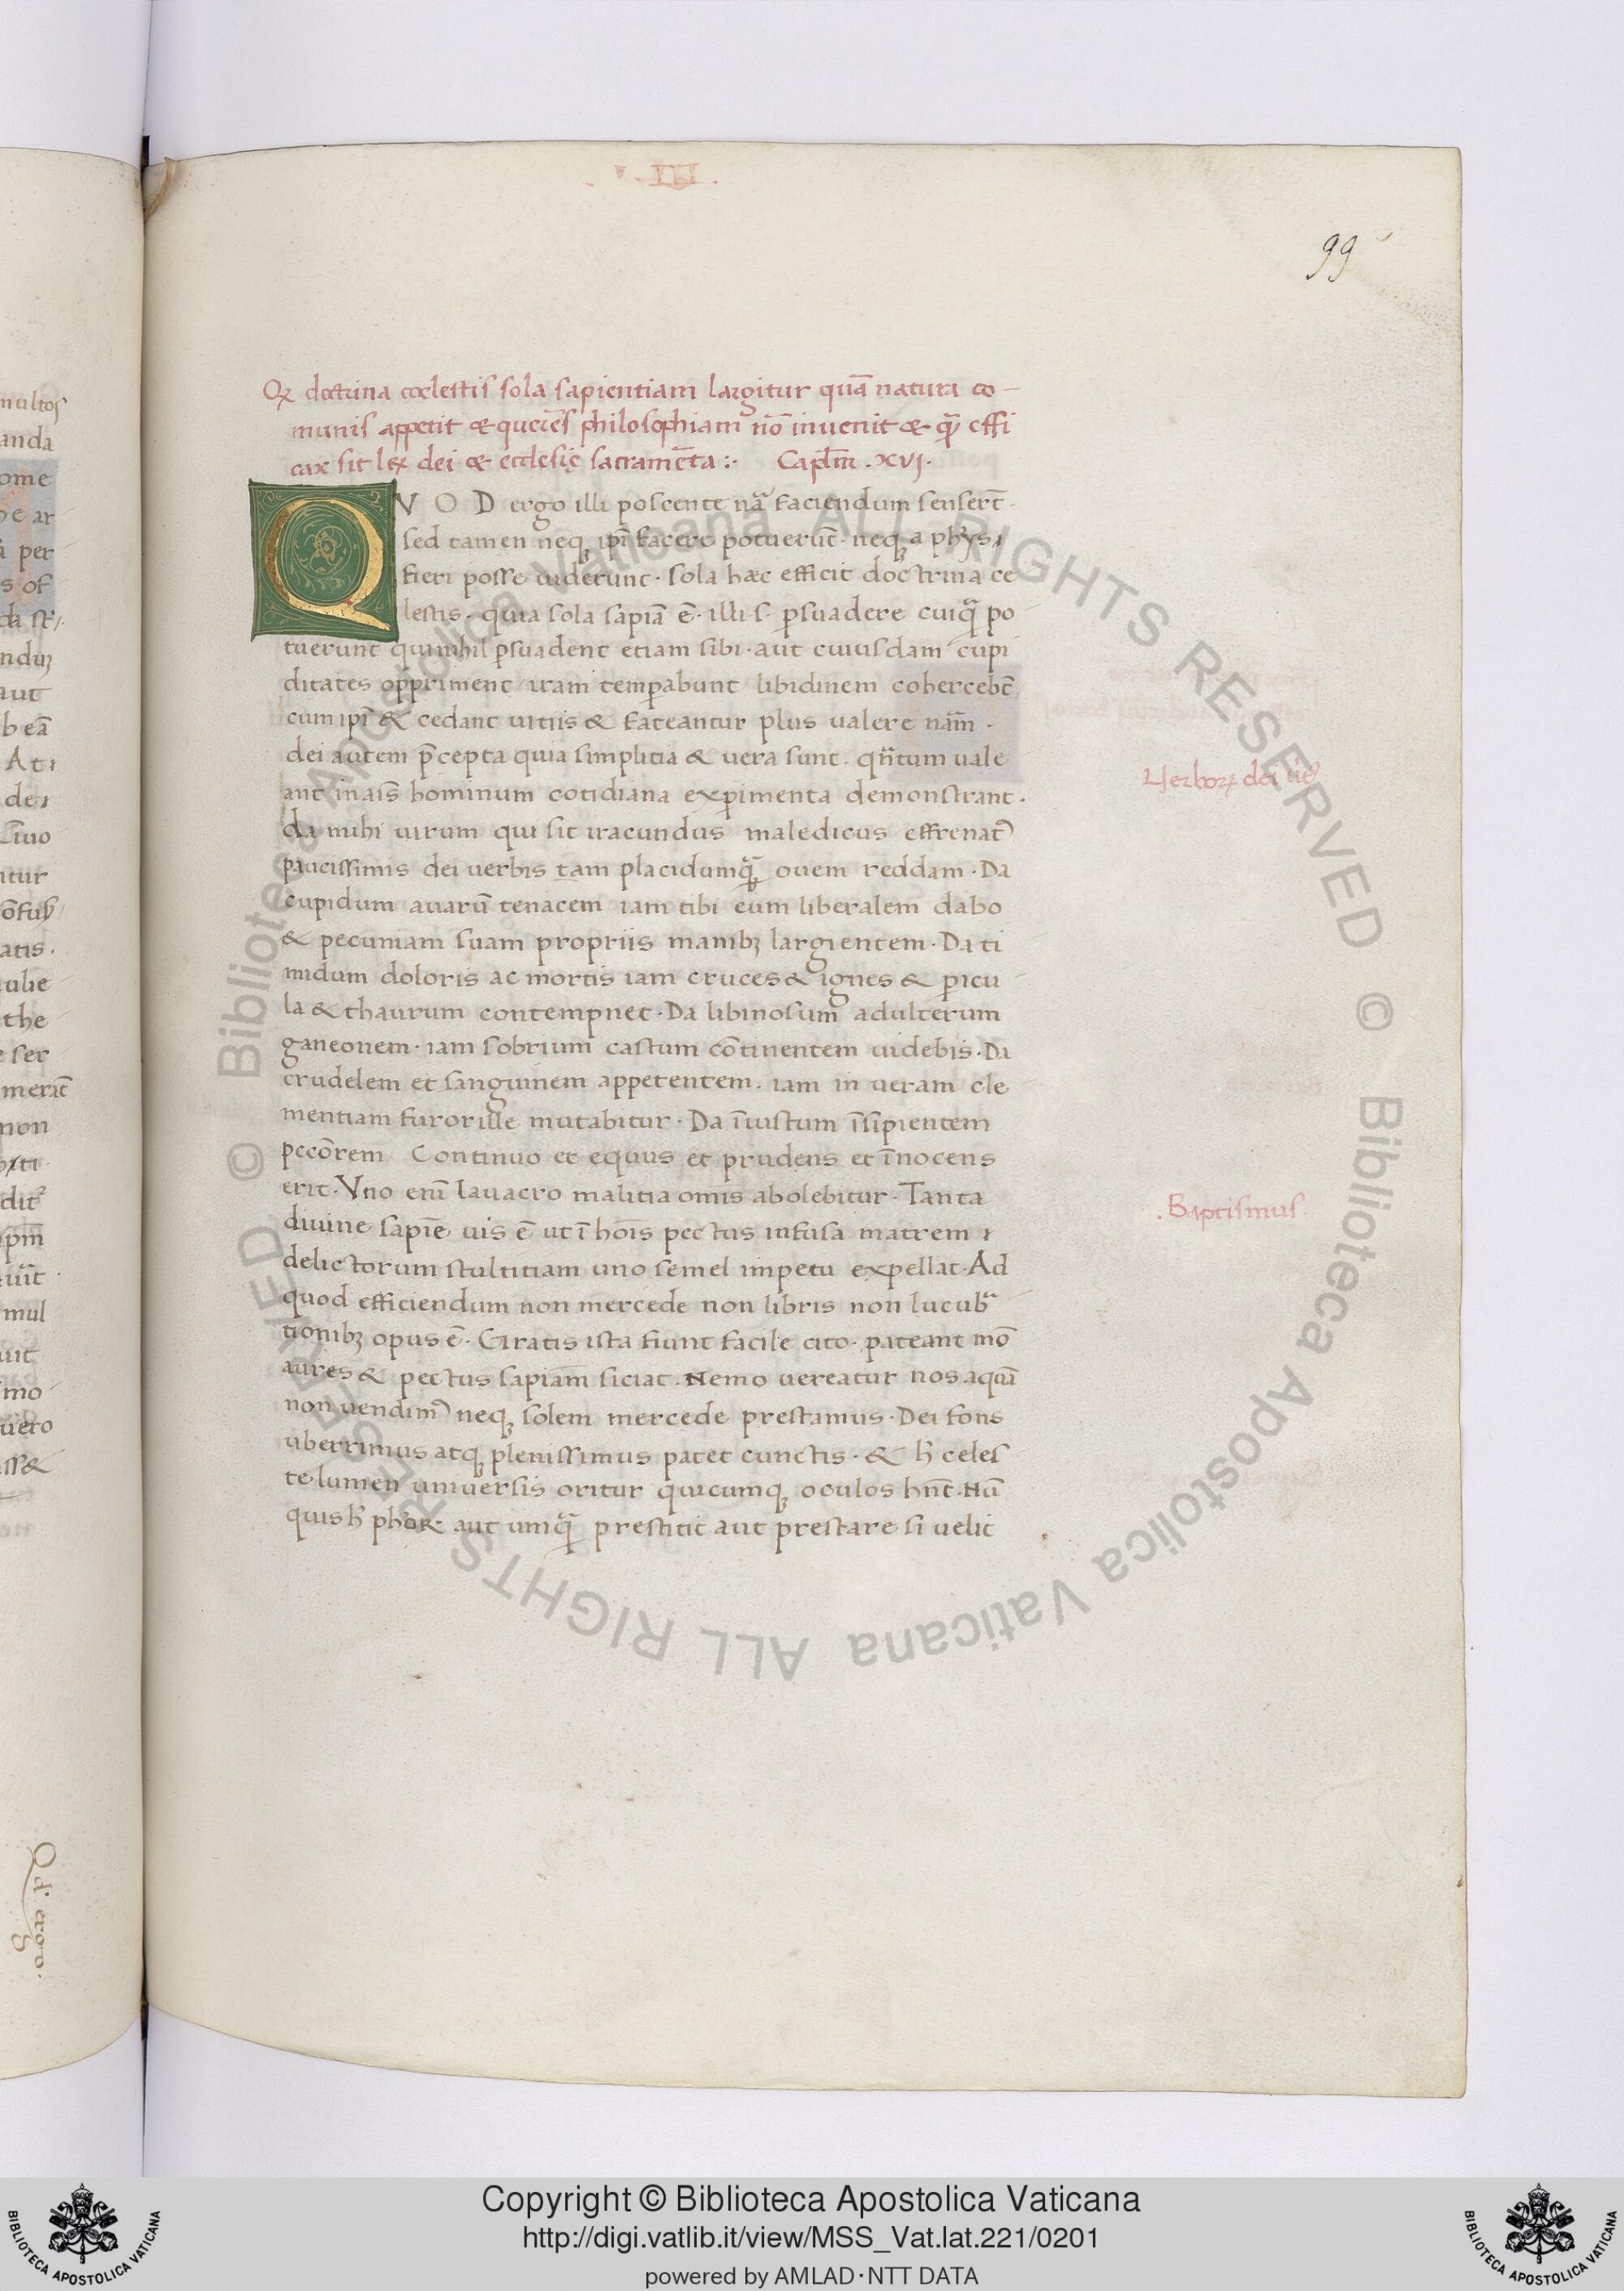 . V. III .
99
Qꝝ doctrina coelestis sola sapientiam largitur quā natura co-
munis appetit & querēs philosophiam nō invenit & qͣ effi
cax sit lex dei & ecclesię sacramēta :· Capl̄m .XVI.
QVOD ergo illi poscente nͣa faciendum senserūt·
sed tamen neqꝫ ip̄i facere potuerūt· neqꝫ a phys
fieri posse viderunt· sola hæc efficit doctrina ce
lestis· quia sola sapiā ē· illi ·s· ꝑsuadere cuiqͣ po
tuerunt qui nihil ꝑsuadent etiam sibi· aut cuiusdam cupi
ditates oppriment / iram temꝑabunt / libidinem cohercebūt
cum ip̄i & cedant vitiis & fateantur plus valere nām·
dei autem p̄cepta quia simplitia & vera sunt· qn̄tum vale
ant in aīs hominum cotidiana exꝑimenta demonstrant·
da mihi virum qui sit iracundus maledicus effrenatꝰ
paucissimis dei verbis tam placidumqͣ ovem reddam· Da
cupidum avarū tenacem iam tibi eum liberalem dabo
& pecuniam suam propriis manibꝫ largientem· Da ti
midum doloris ac mortis iam cruces & ignes & ꝑicu
la & thaurum contempnet· Da libinosum adulterum
ganeonem· iam sobrium castum cōtinentem videbis· Da
crudelem et sanguinem appetentem· iam in veram cle
mentiam furor ille mutabitur· Da īiustum īsipientem
peccōrem Continuo et equus et prudens et īnocens
erit· Vno enī lavacro malitia omīs abolebitur· Tanta
divine sapiē vis ē ut ī hoīs pectus infusa matrem
delictorum stultitiam uno semel impetu expellat· Ad
quod efficiendum non mercede non libris non lucubͣ
tionibꝫ opus ē· Gratis ista fiunt facile cito· pateant mō
aures & pectus sapiam siciat· Nemo vereatur nos aquā
non vendimꝰ neqꝫ solem mercede prestamus· Dei fons
uberrimus atqꝫ plenissimus patet cunctis· & h̄ celes
te lumen universis oritur quicumqꝫ oculos hn̄t· Nū
quis h̄ ph'oꝝ aut umqͣ prestitit aut prestare si velit
Verboꝝ dei
. Baptismus .
multos
anda
per
aut
the
non
mul
Qd' ergo.
© Biblioteca Apostolica Vaticana ALL RIGHTS RESERVED © Biblioteca Apostolica Vaticana ALL RIGHTS RESERVED
BIBLIOTECA APOSTOLICA VATICANA
Copyright © Biblioteca Apostolica Vaticana
http://digi.vatlib.it/view/MSS_Vat.lat.221/0201
powered by AMLAD·NTT DATA
BIBLIOTECA APOSTOLICA VATICANA